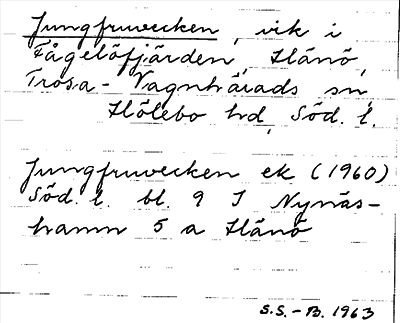 Jungfruvecken, vik i
Fågelöfjärden, Hånö,
Trosa-Vagnhärads sn,
Hölebo hd, Söd. l.
Jungfruvecken ek (1960)
Söd. l. bl. 9 I Nynäs-
hamn 5 a Hånö
S.S.-B. 1963